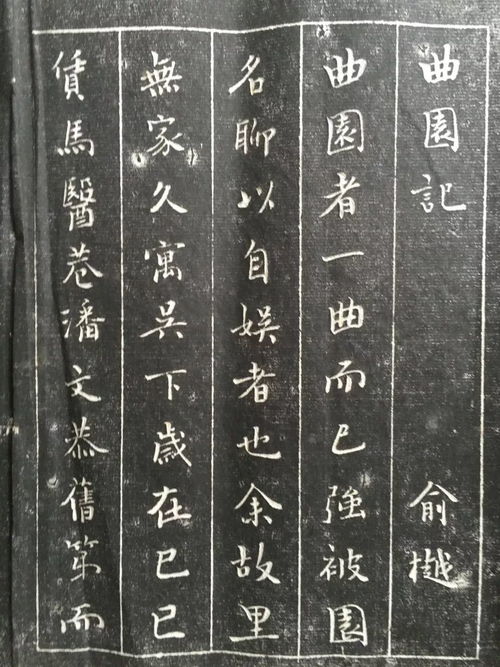 曲園記 俞樾
曲園者一曲而已強被園
名聊以自娱者也余故里
無家久寓吳下歲在己巳
賃馬醫巷潘文恭舊第而